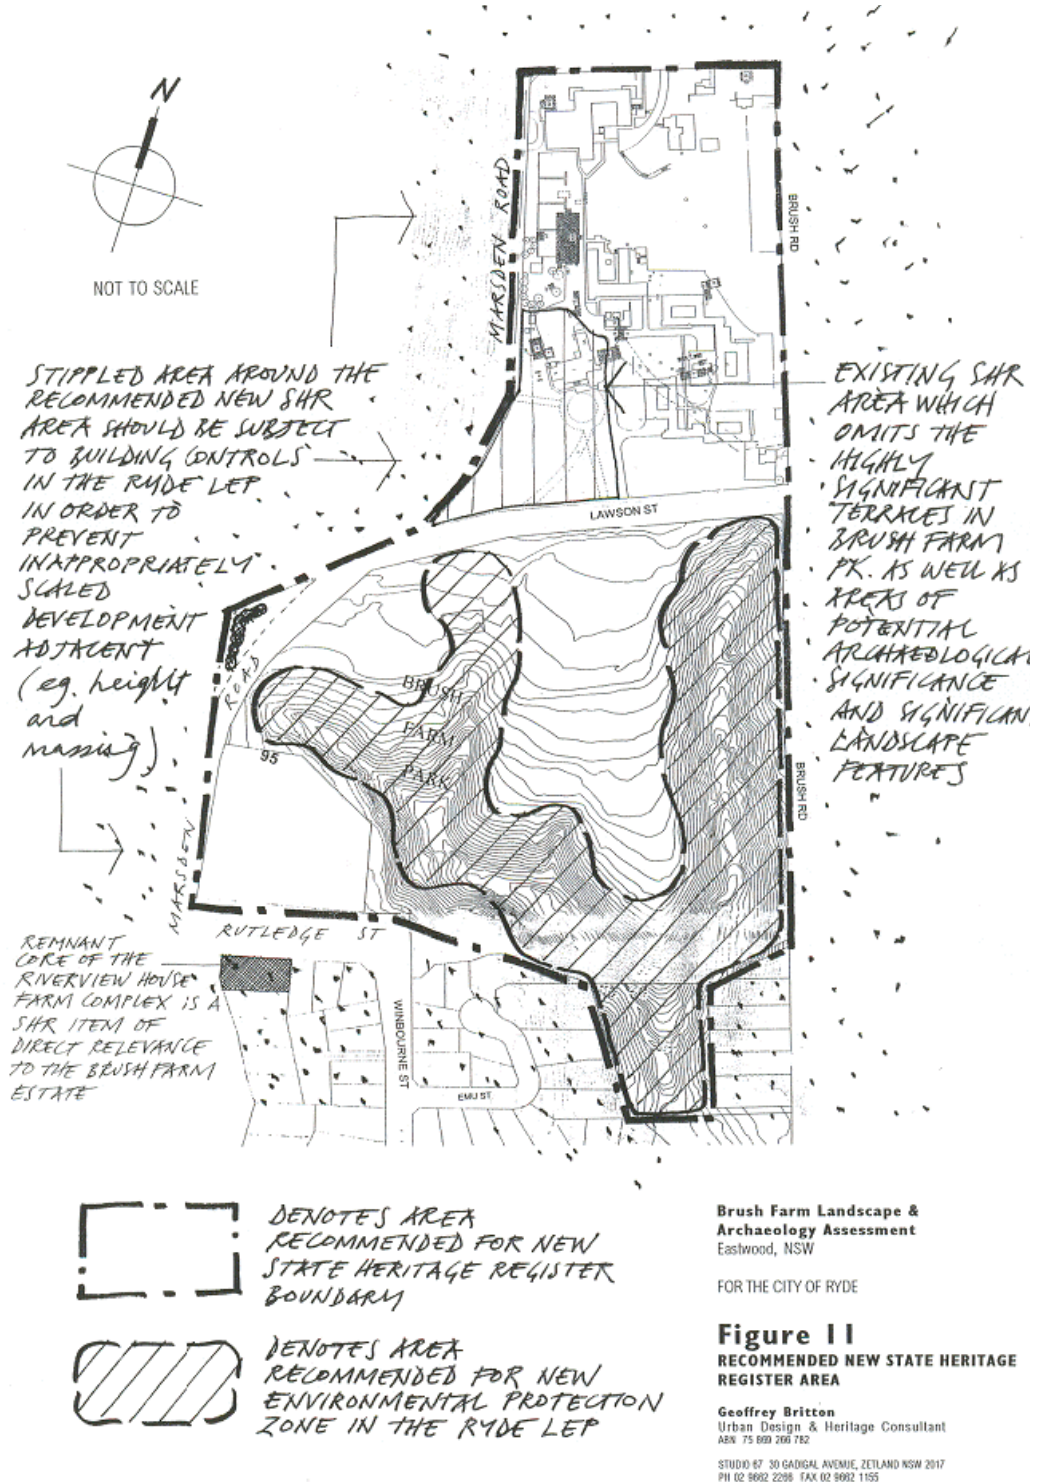 N
NOT TO SCALE
MARSDEN ROAD
BRUSH RD
STIPPLED AREA AROUND THE
RECOMMENDED NEW SHR
AREA SHOULD BE SUBJECT
TO BUILDING CONTROLS
IN THE RYDE LEP
IN ORDER TO
PREVENT
INAPPROPRIATELY
SCALED
DEVELOPMENT
ADJACENT
(eg. height
and
massing).
EXISTING SHR
AREA WHICH
OMITS THE
HIGHLY
SIGNIFICANT
TERRACES IN
BRUSH FARM
PK. AS WELL AS
AREAS OF
POTENTIAL
ARCHAEOLOGICAL
SIGNIFICANCE
AND SIGNIFICAN
LANDSCAPE
FEATURES
LAWSON ST
BRUSH
FARM
PARK
95
ROAD
MARSDEN
BRUSH RD
RUTLEDGE ST
REMNANT
CORE OF THE
RIVERVIEW HOUSE
FARM COMPLEX IS A
SHR ITEM OF
DIRECT RELEVANCE
TO THE BRUSH FARM
ESTATE
WINBOURNE ST
EMU ST
DENOTES AREA
RECOMMENDED FOR NEW
STATE HERITAGE REGISTER
BOUNDARY
DENOTES AREA
RECOMMENDED FOR NEW
ENVIRONMENTAL PROTECTION
ZONE IN THE RYDE LEP
Brush Farm Landscape &
Archaeology Assessment
Eastwood, NSW
FOR THE CITY OF RYDE
Figure 11
RECOMMENDED NEW STATE HERITAGE
REGISTER AREA
Geoffrey Britton
Urban Design & Heritage Consultant
ABN 75 869 266 782
STUDIO 67 30 GADIGAL AVENUE, ZETLAND NSW 2017
PH 02 9662 2266 FAX 02 9662 1155